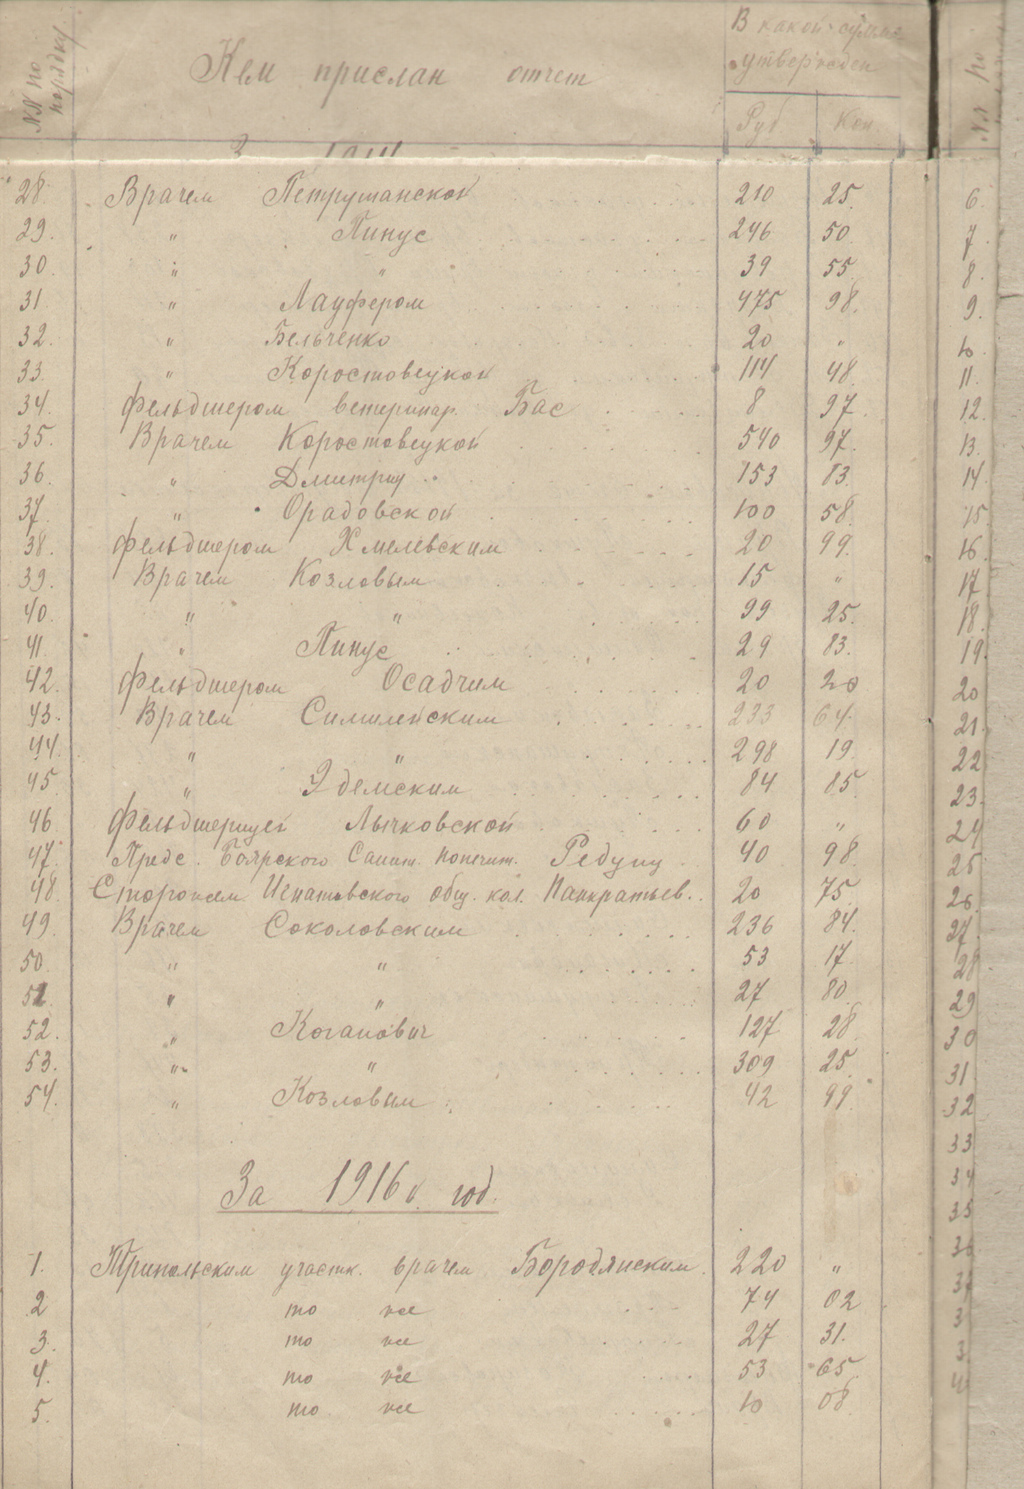 NN по порядку
Кем прислан отчет
В какой сумме утвержден
Руб. Коп.
NN по
28. Врачем Петрушанской 210 25.
29. " Пинус 246 50
30. " " 39 55.
31. " Лауфером 475 98.
32. " Бельченко 20 "
33. " Коростовецкой 114 48.
34. Фельдшером ветеринар. Бас 8 97.
35. Врачем Коростовецкой 540 97.
36. " Дмитриу 153 83.
37. " Орадовской 100 58.
38. Фельдшером Хмелевским 20 99.
39. Врачем Козловым 15 "
40. " " 99 25.
41. " Пинус 29 83.
42. Фельдшером Осадчим 20 20
43. Врачем Симилейским 233 64.
44. " " 298 19.
45. " Удемским 84 85.
46 Фельдшерицей Лычковской 60 "
47. Предс. Боярского Санит. попечит. Редуцу 40 98.
48. Сторожем Игнатовского общ. кол. Панкратьев. 20 75.
49. Врачем Соколовским 236 84.
50. " " 53 17.
51 " " 27 80.
52. " Коганович 127 28
53. " " 309 25.
54. " Козловым 42 99.
За 1916 й год.
1. Трипольским участк. врачем Бородянским. 220 "
2 то же 74 02
3. то же 27 31.
4. то же 53 65.
5. то же 10 08
6.
7.
8.
9.
10.
11.
12.
13.
14
15
16.
17
18.
19.
20
21.
22
23.
24
25
26.
27.
28
29
30
31
32
33
34
35
36